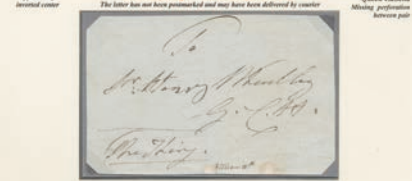 inverted center
The latter has not been postmarked and may have been delivered by courier
Missing perforation
between pair
To
Sir Henry Wheatley
G. C. H.
The King.